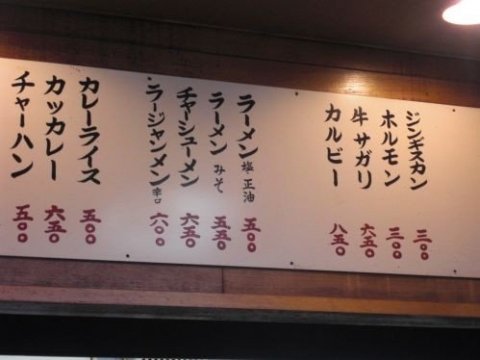 ジンギスカン 三〇〇
ホルモン 三〇〇
牛サガリ 六五〇
カルビー 八五〇
ラーメン 塩 正油 五〇〇
ラーメン みそ 五五〇
チャーシューメン 六五〇
ラージャンメン 辛口 六〇〇
カレーライス 五〇〇
カツカレー 六五〇
チャーハン 五〇〇